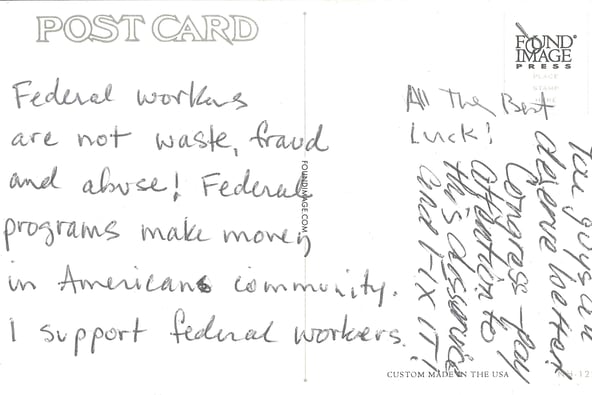 POST CARD
FOUND®
IMAGE
PRESS
PLACE
STAMP
HERE
Federal workers
are not waste, fraud
and abuse! Federal
programs make money
in Americans community.
I support federal workers.
FOUNDIMAGE.COM
All The Best
Luck!
You guys
deserve better!
Congress - pay
attention to
this
and FIX IT!
CUSTOM MADE IN THE USA